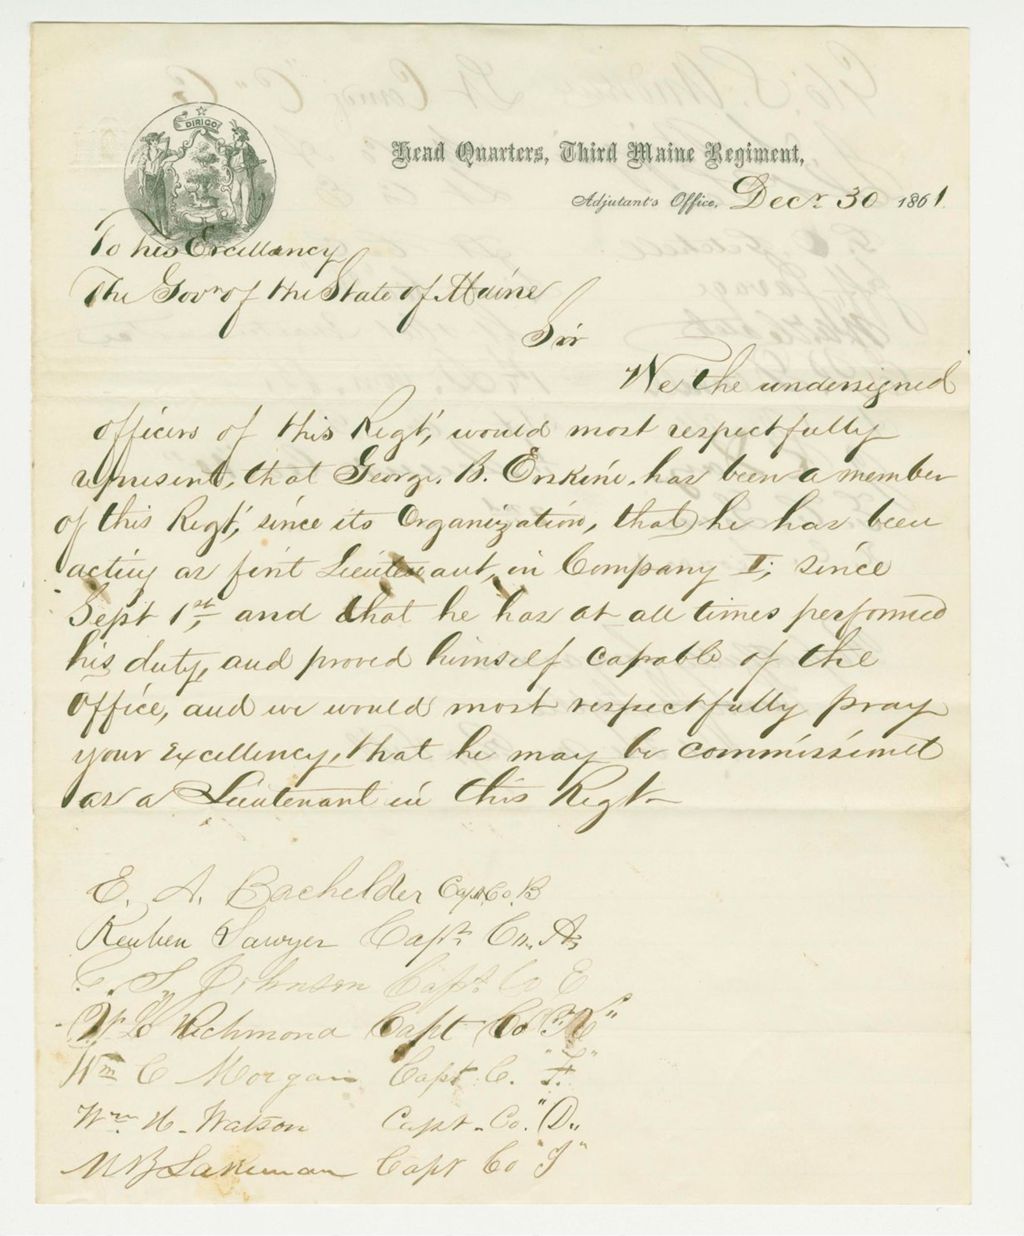 DIRIGO
Head Quarters, Third Maine Regiment,
Adjutant's Office, Decr 30 1861.
To his Excellancy
The Govr of the State of Maine
Sir
We the undersigned
officers of this Regt, would most respectfully
represent, that George. B. Erskine. has been a member
of this Regt, since its Organization, that he has been
acting as first Lieutenant, in Company I, since
Sept 1st, and that he has at all times performed
his duty, and proved himself capable of the
Office, and we would most respectfully pray
your Excellency, that he may be commissioned
as a Lieutenant in this Regt
E. A. Bachelder Capt. Co. B
Reuben Sawyer Capt. Co. A,
S. Johnson Capt. Co E
Richmond Capt Co "K"
Wm C Morgan Capt C. "F."
Wm. H. Watson Capt. Co. "D.,
M B Lakeman Capt Co "I"